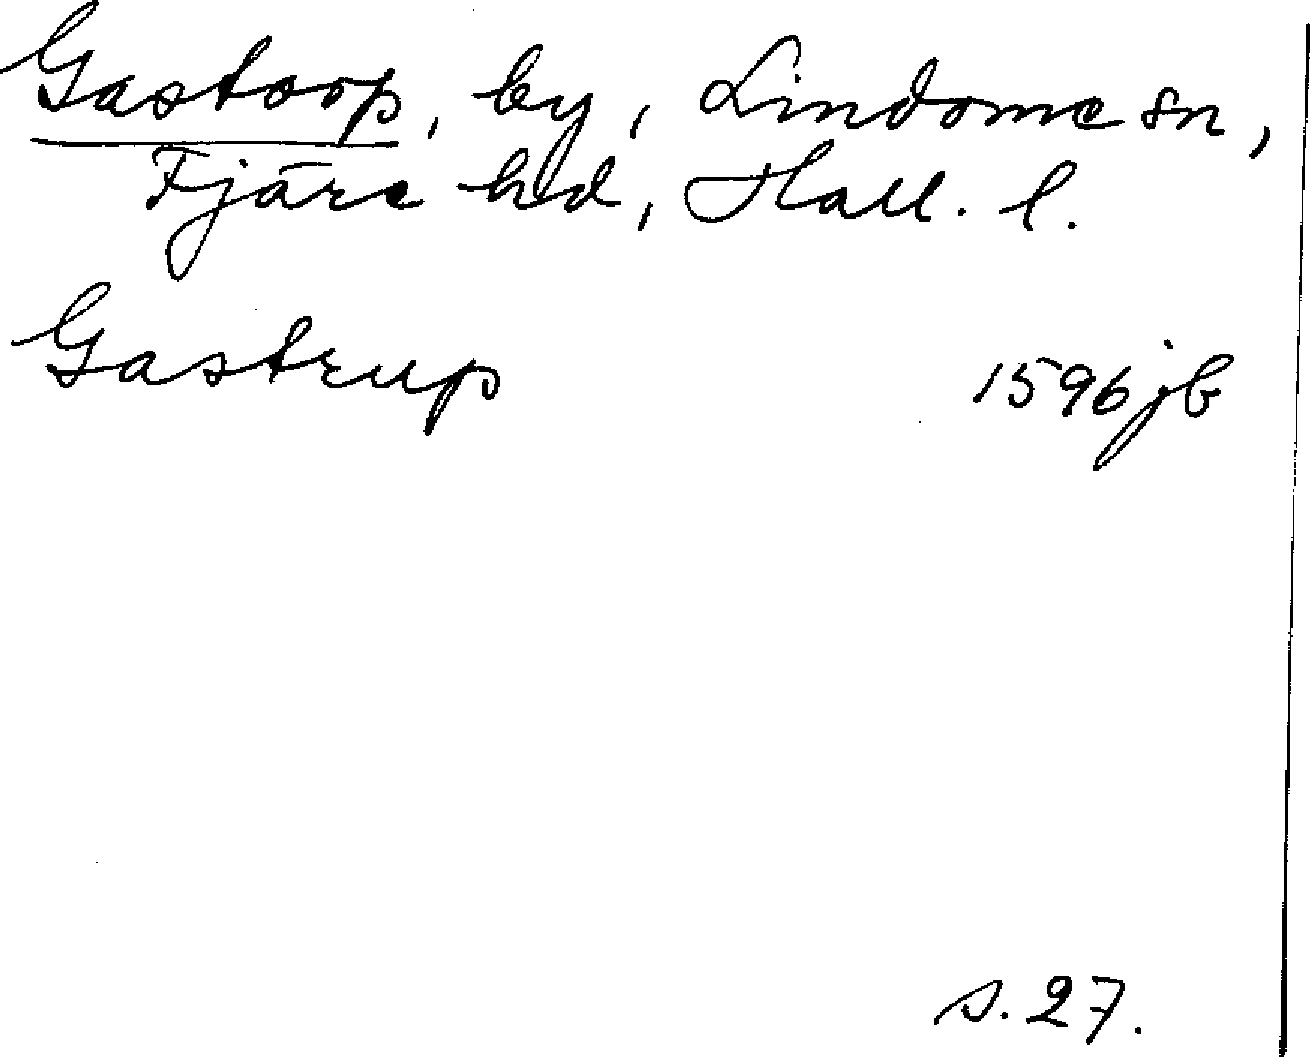 Gastorp, by, Lindome sn,
Fjäre hd, Hall. l.
Gastrup 1596 jb
s. 27.